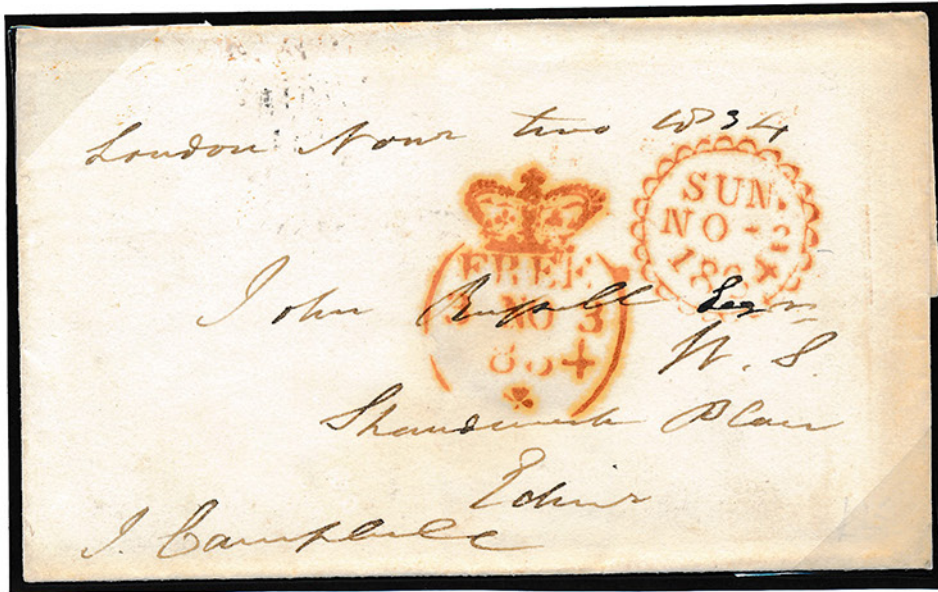 London Novr two 1834
SUN.
NO - 2
1834
FREE
3 NO 3
1834
John Russell Esqr
W. S.
Shandwick Place
Edinr
J. Campbell